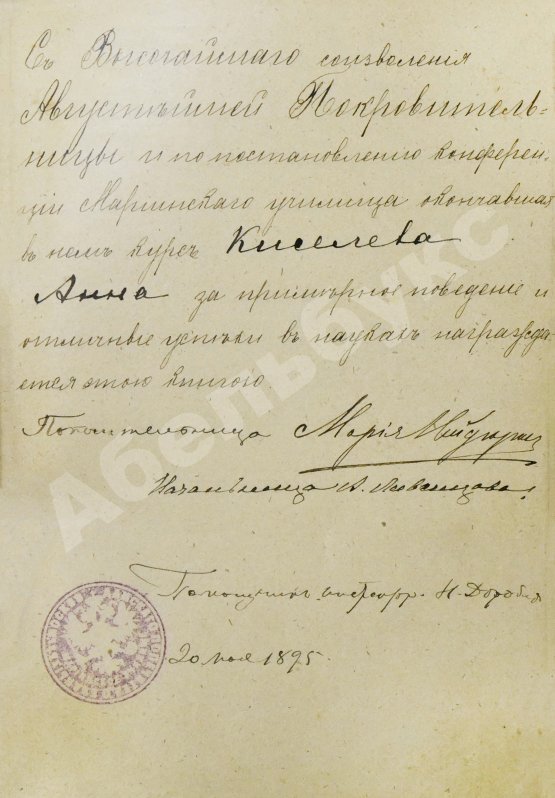 Съ Высочайшаго соизволенія
Августѣйшей Покровитель=
ницы и по постановленію конферен-
ціи Маріинскаго училища окончавшая
въ немъ курсъ Киселева
Анна за примѣрное поведеніе и
отличные успѣхи въ наукахъ награжда-
ется этою книгою.
Попечительница Марія
Начальница А.
Помощникъ инспектр. Н.
20 мая 1895.
Абельбукс